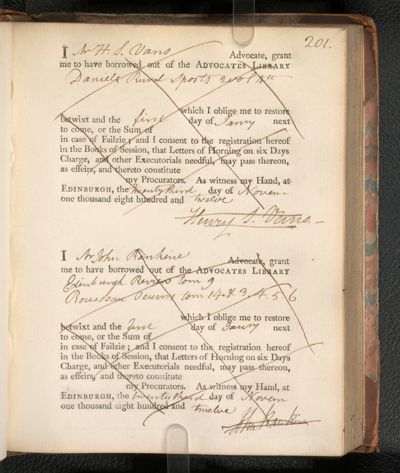 201.
I Mr H. S. Vans Advocate, grant
me to have borrowed out of the ADVOCATES LIBRARY
Daniels Rural Sports 2 vol 4to
which I oblige me to restore
betwixt and the first day of Janry next
to come, or the Sum of
in case of Failzie; and I consent to the registration hereof
in the Books of Session, that Letters of Horning on six Days
Charge, and other Executorials needful, may pass thereon,
as effeirs, and thereto constitute
my Procurators. As witness my Hand, at
EDINBURGH, the twenty third day of Novem
one thousand eight hundred and twelve
Henry S. Vans.
I Mr John Rankine Advocate, grant
me to have borrowed out of the ADVOCATES LIBRARY
Edinburgh Review tom 9
Rousseau Oeuvres tom 1. 2. 3. 4. 5 6
which I oblige me to restore
betwixt and the first day of Janry next
to come, or the Sum of
in case of Failzie; and I consent to the registration hereof
in the Books of Session, that Letters of Horning on six Days
Charge, and other Executorials needful, may pass thereon,
as effeirs, and thereto constitute
my Procurators. As witness my Hand, at
EDINBURGH, the twenty third day of Novem
one thousand eight hundred and twelve
John Rankine